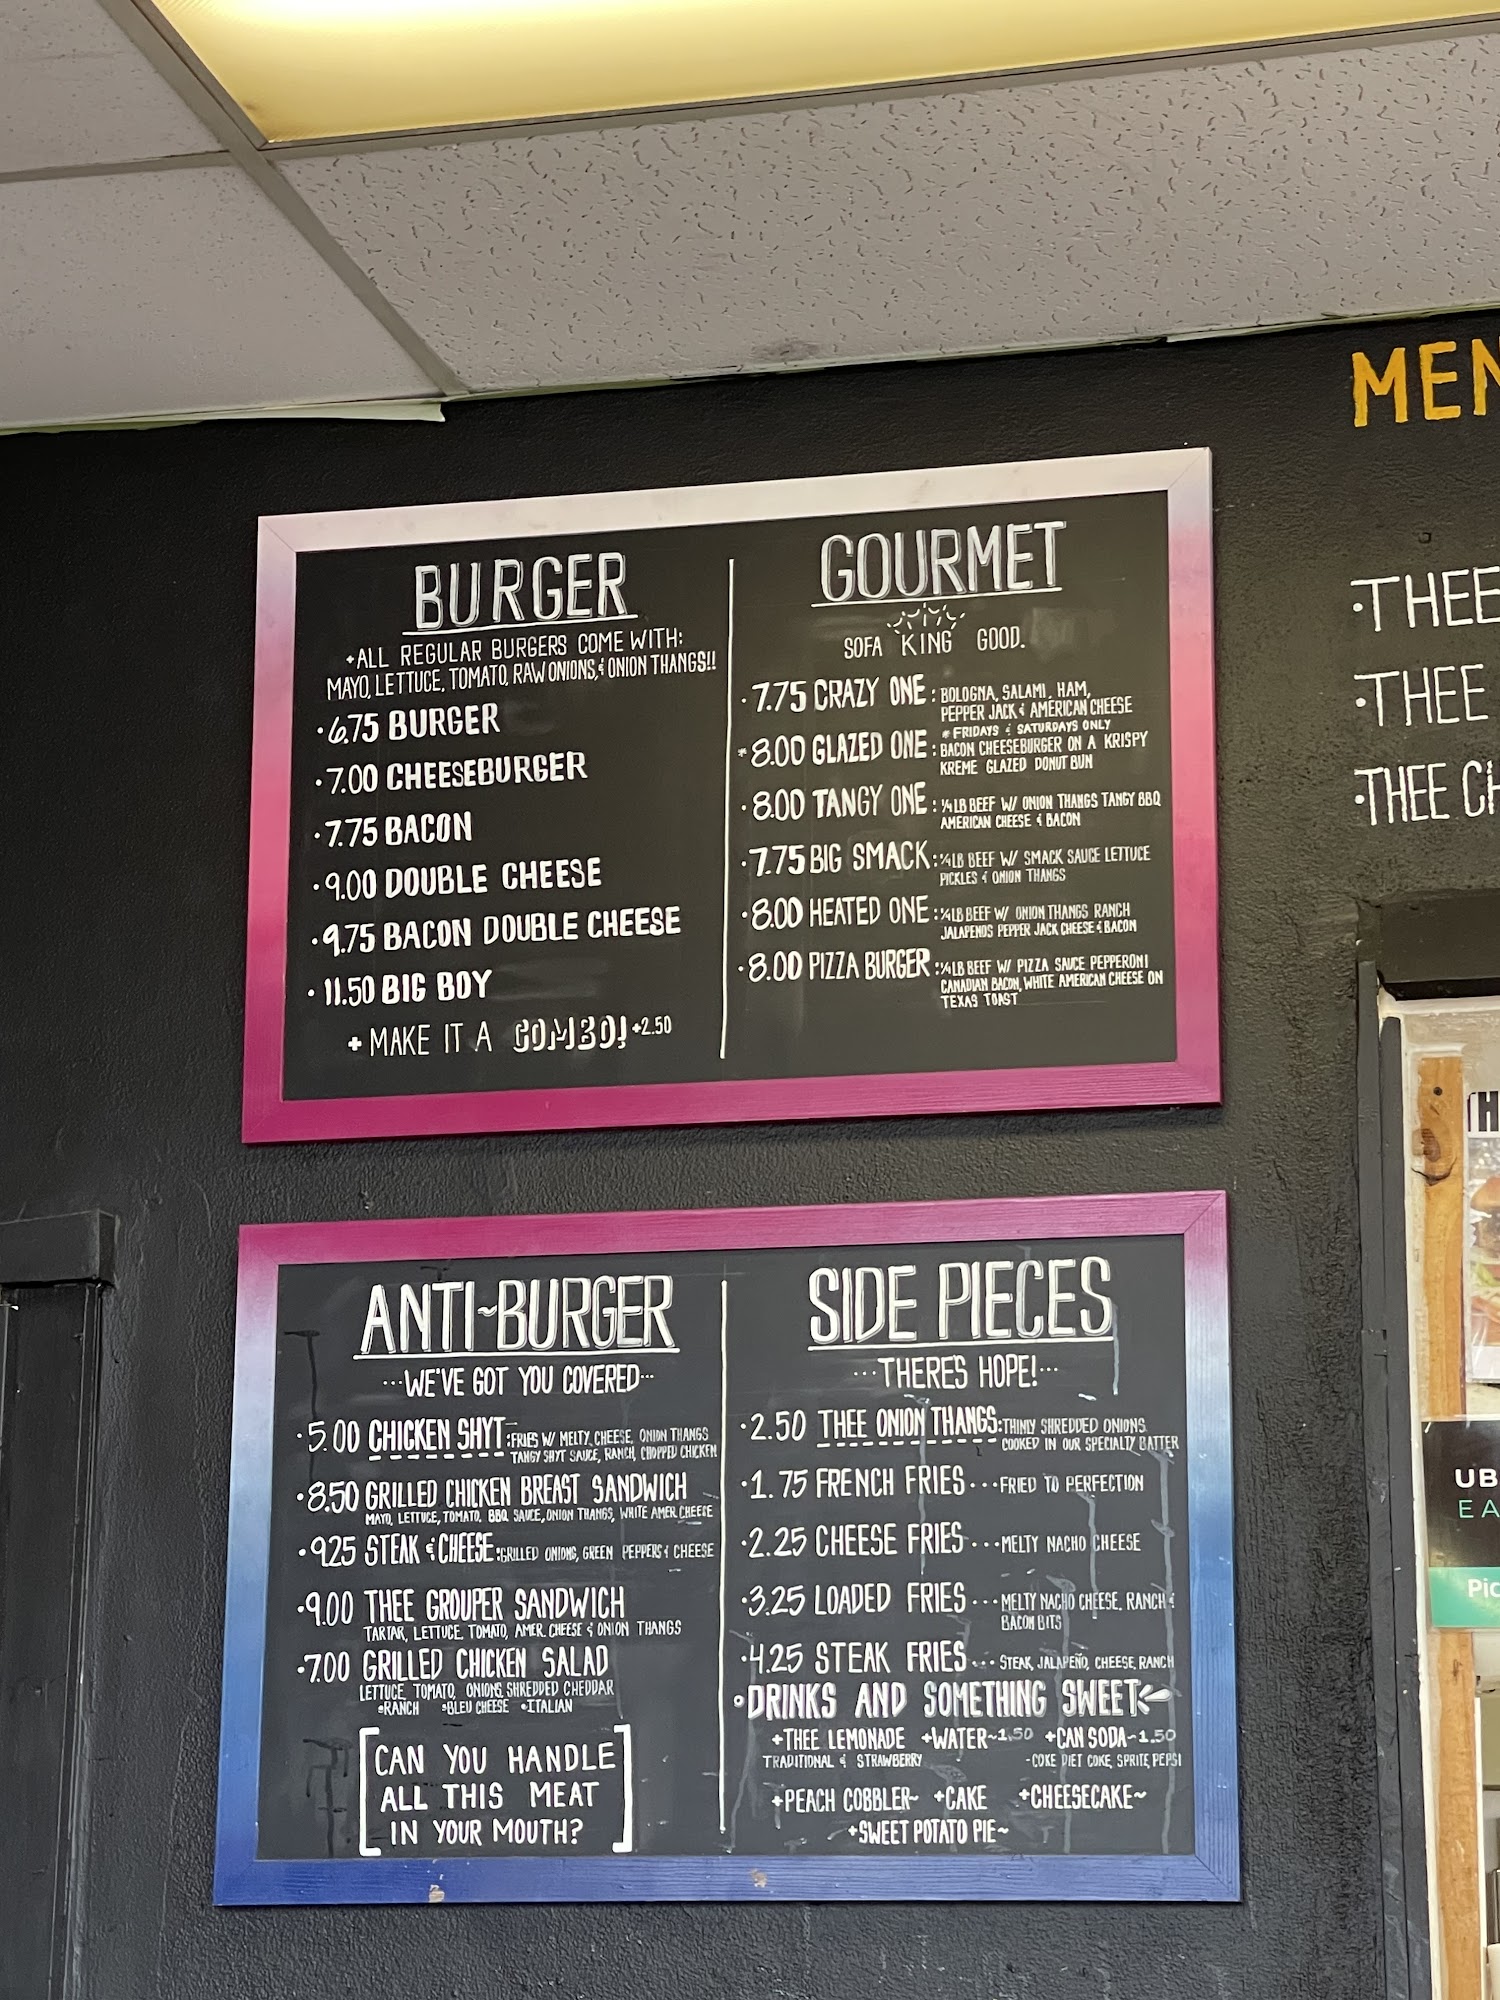 MEN
BURGER
+ALL REGULAR BURGERS COME WITH:
MAYO, LETTUCE, TOMATO, RAW ONIONS, & ONION THANGS!!
·6.75 BURGER
·7.00 CHEESEBURGER
·7.75 BACON
·9.00 DOUBLE CHEESE
·9.75 BACON DOUBLE CHEESE
·11.50 BIG BOY
+ MAKE IT A COMBO! +2.50
GOURMET
SOFA KING GOOD.
·7.75 CRAZY ONE: BOLOGNA, SALAMI, HAM,
PEPPER JACK & AMERICAN CHEESE
*FRIDAYS & SATURDAYS ONLY
*8.00 GLAZED ONE: BACON CHEESEBURGER ON A KRISPY
KREME GLAZED DONUT BUN
·8.00 TANGY ONE: 1/4 LB BEEF W/ ONION THANGS TANGY BBQ
AMERICAN CHEESE & BACON
·7.75 BIG SMACK: 1/4 LB BEEF W/ SMACK SAUCE LETTUCE
PICKLES & ONION THANGS
·8.00 HEATED ONE: 1/4 LB BEEF W/ ONION THANGS RANCH
JALAPENOS PEPPER JACK CHEESE & BACON
·8.00 PIZZA BURGER: 1/4 LB BEEF W/ PIZZA SAUCE PEPPERONI
CANADIAN BACON, WHITE AMERICAN CHEESE ON
TEXAS TOAST
·THEE
·THEE
·THEE CH
ANTI~BURGER
···WE'VE GOT YOU COVERED···
·5.00 CHICKEN SHYT: FRIES W/ MELTY CHEESE, ONION THANGS
TANGY SHYT SAUCE, RANCH, CHOPPED CHICKEN
·8.50 GRILLED CHICKEN BREAST SANDWICH
MAYO, LETTUCE, TOMATO, BBQ SAUCE, ONION THANGS, WHITE AMER. CHEESE
·9.25 STEAK & CHEESE: GRILLED ONIONS, GREEN PEPPERS & CHEESE
·9.00 THEE GROUPER SANDWICH
TARTAR, LETTUCE, TOMATO, AMER. CHEESE & ONION THANGS
·7.00 GRILLED CHICKEN SALAD
LETTUCE, TOMATO, ONIONS, SHREDDED CHEDDAR
•RANCH •BLEU CHEESE •ITALIAN
[CAN YOU HANDLE
ALL THIS MEAT
IN YOUR MOUTH?]
SIDE PIECES
···THERE'S HOPE!···
·2.50 THEE ONION THANGS: THINLY SHREDDED ONIONS
COOKED IN OUR SPECIALTY BATTER
·1.75 FRENCH FRIES···FRIED TO PERFECTION
·2.25 CHEESE FRIES···MELTY NACHO CHEESE
·3.25 LOADED FRIES···MELTY NACHO CHEESE, RANCH &
BACON BITS
·4.25 STEAK FRIES··· STEAK, JALAPEÑO, CHEESE, RANCH
•DRINKS AND SOMETHING SWEET
+THEE LEMONADE +WATER~1.50 +CAN SODA~1.50
TRADITIONAL & STRAWBERRY -COKE DIET COKE, SPRITE, PEPSI
+PEACH COBBLER~ +CAKE +CHEESECAKE~
+SWEET POTATO PIE~
UB
EA
Pic